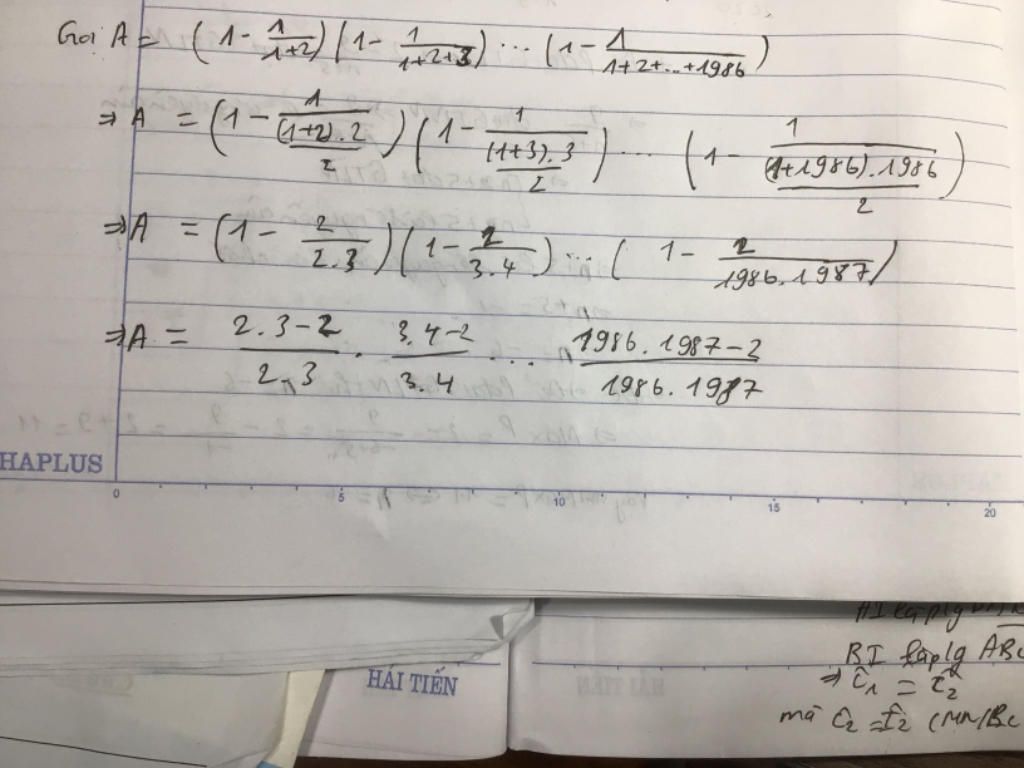 Gọi A = (1 - 1/(1+2)) (1 - 1/(1+2+3)) ... (1 - 1/(1+2+...+1986))
⇒ A = (1 - 1/((1+2).2/2)) (1 - 1/((1+3).3/2)) ... (1 - 1/((1+1986).1986/2))
⇒ A = (1 - 2/(2.3)) (1 - 2/(3.4)) ... (1 - 2/(1986.1987))
⇒ A = (2.3-2)/(2.3) . (3.4-2)/(3.4) ... (1986.1987-2)/(1986.1987)
HAPLUS
0 5 10 15 20
BI
⇒ Ĉ1 = Ĉ2
HẢI TIẾN
mà Ĉ2 = Î2